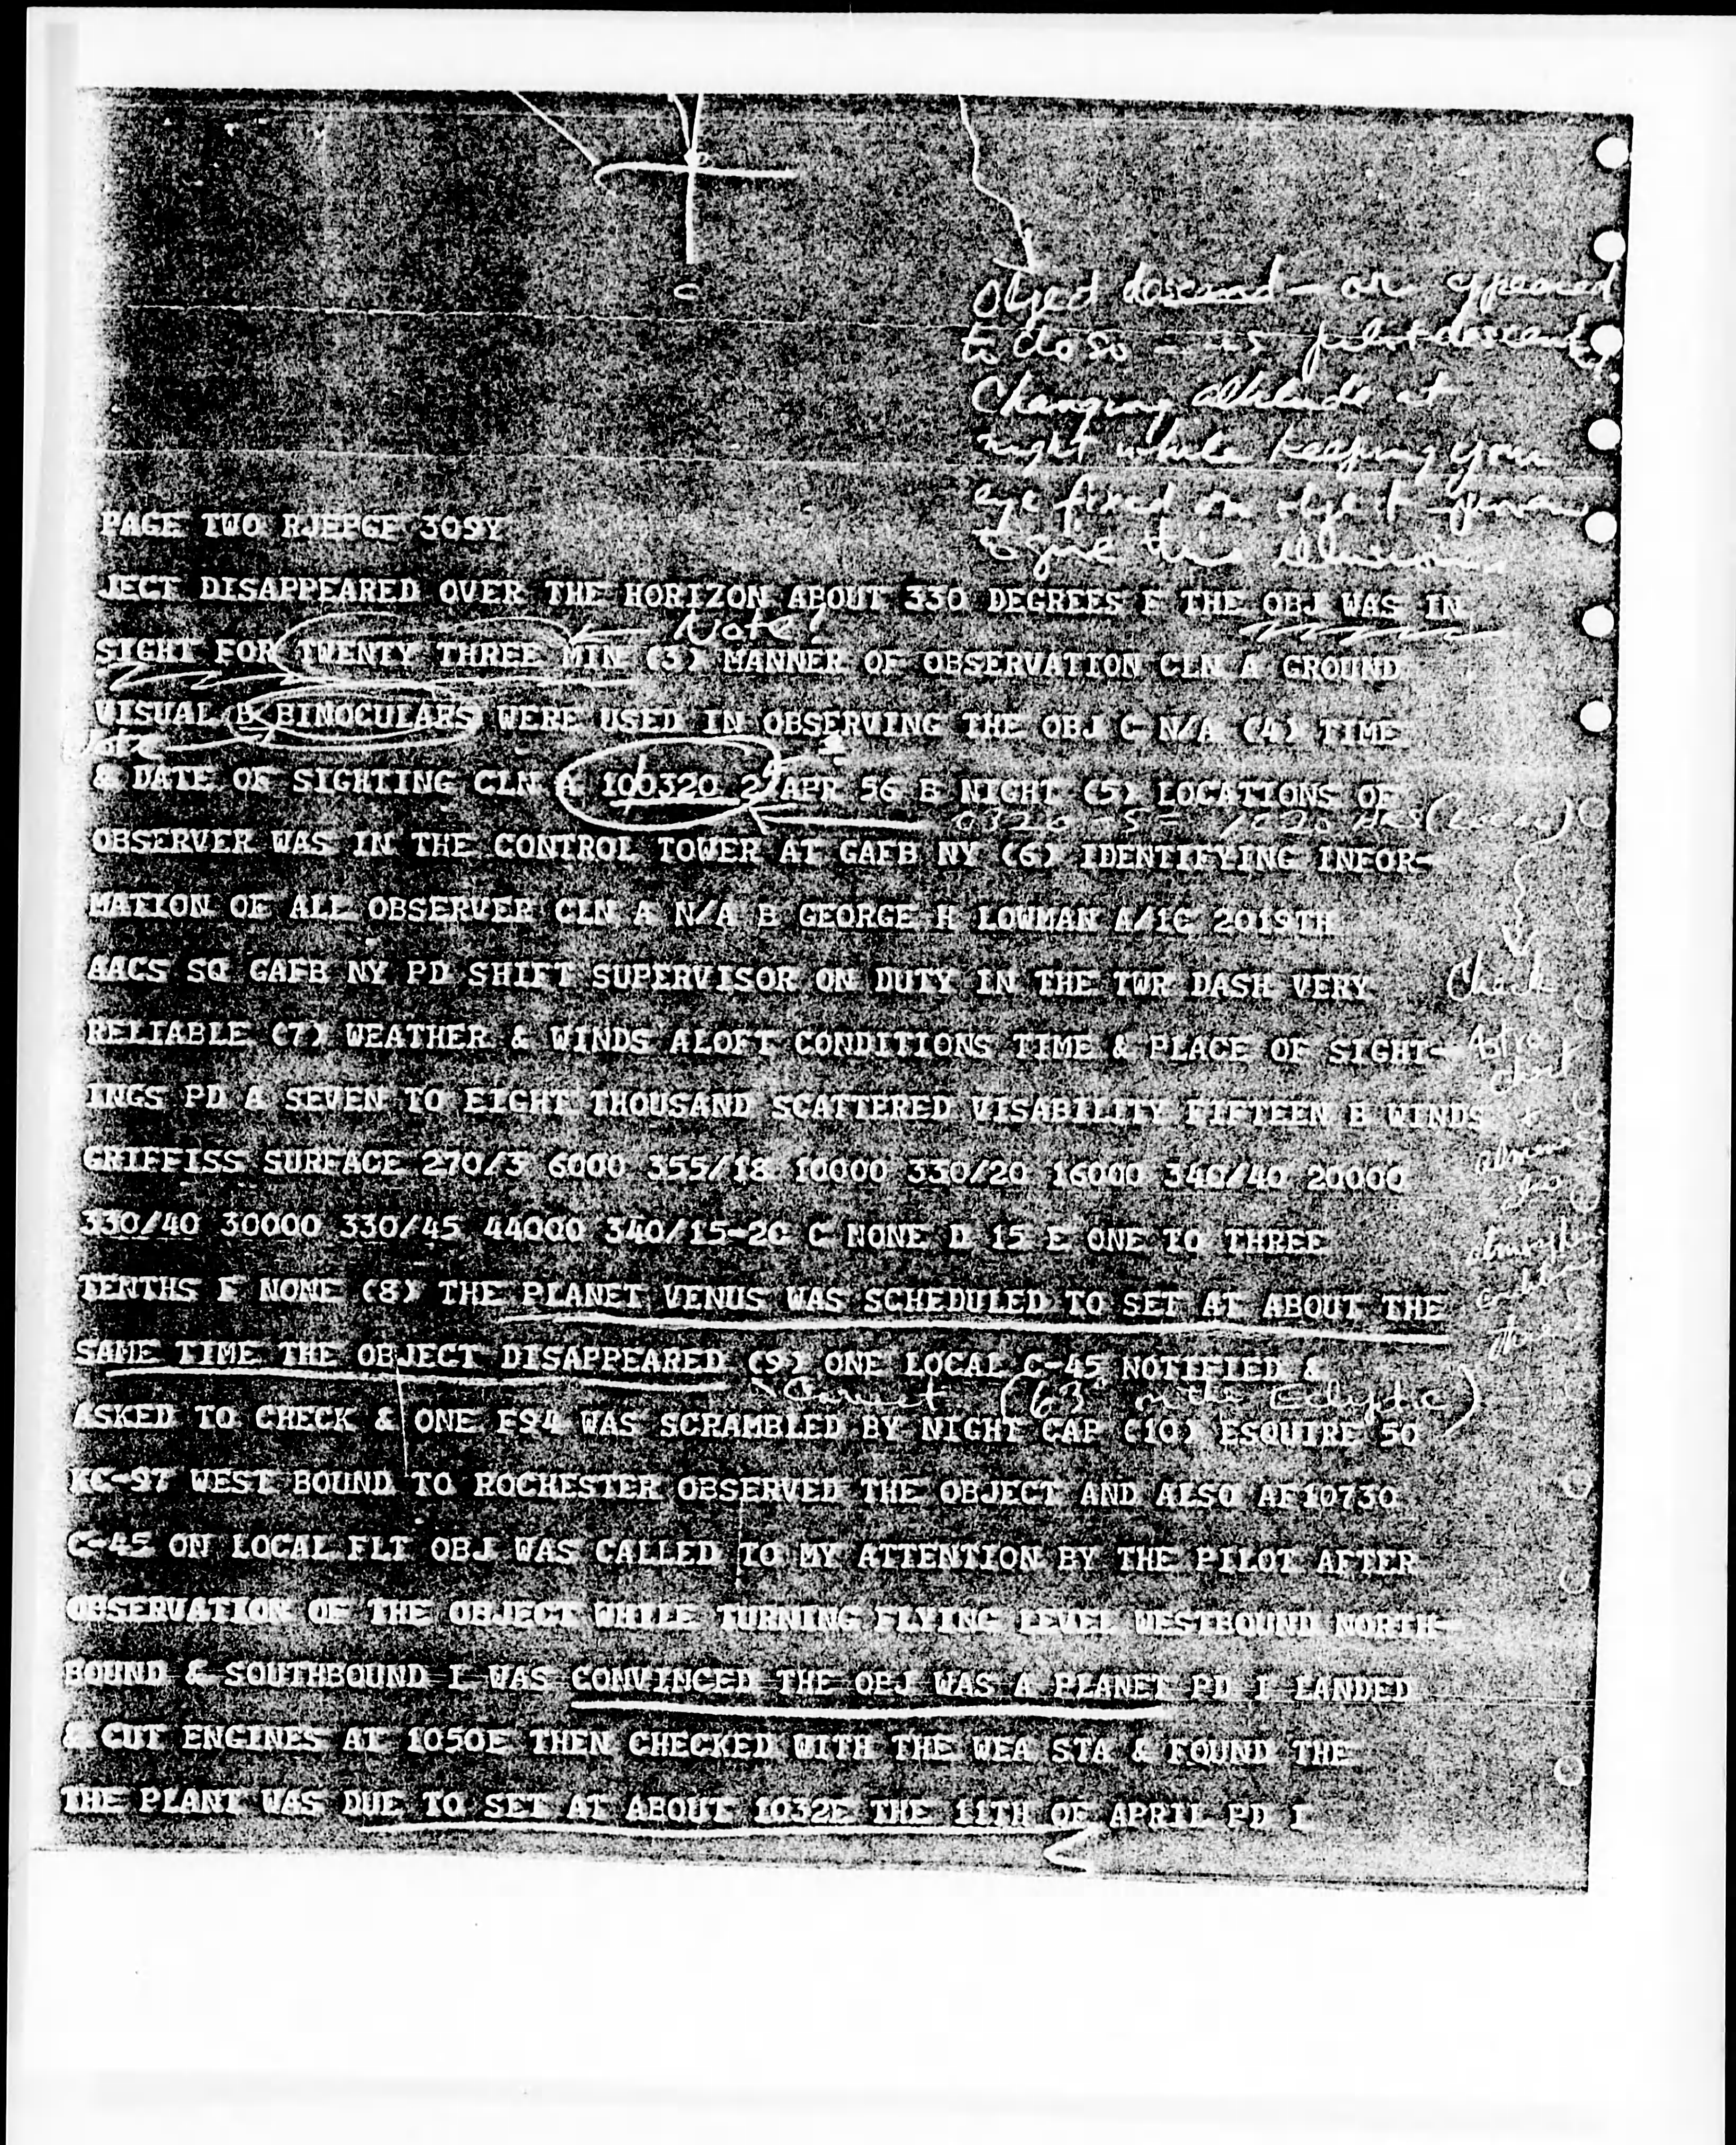 Object descend — or appeared
to do so — as pilot descends.
Changing altitude at
night while keeping your
eye fixed on object
to give this illusion
PAGE TWO RJEPGF 309Y
JECT DISAPPEARED OVER THE HORIZON ABOUT 330 DEGREES F THE OBJ WAS IN
Note!
SIGHT FOR TWENTY THREE MIN (3) MANNER OF OBSERVATION CLN A GROUND
VISUAL B BINOCULARS WERE USED IN OBSERVING THE OBJ C N/A (4) TIME
Note
& DATE OF SIGHTING CLN A 100320 Z APR 56 B NIGHT (5) LOCATIONS OF
0320 - 5 =
OBSERVER WAS IN THE CONTROL TOWER AT GAFB NY (6) IDENTIFYING INFOR-
MATION OF ALL OBSERVER CLN A N/A B GEORGE H LOWMAN A/1C 2019TH
AACS SQ GAFB NY PD SHIFT SUPERVISOR ON DUTY IN THE TWR DASH VERY
Check
RELIABLE (7) WEATHER & WINDS ALOFT CONDITIONS TIME & PLACE OF SIGHT-
Astro
chart
INGS PD A SEVEN TO EIGHT THOUSAND SCATTERED VISABILITY FIFTEEN B WINDS
+
GRIFFISS SURFACE 270/3 6000 355/18 10000 330/20 16000 340/40 20000
330/40 30000 330/45 44000 340/15-20 C NONE D 15 E ONE TO THREE
TENTHS F NONE (8) THE PLANET VENUS WAS SCHEDULED TO SET AT ABOUT THE
SAME TIME THE OBJECT DISAPPEARED (9) ONE LOCAL C-45 NOTIFIED &
Correct (63° on the Ecliptic)
ASKED TO CHECK & ONE F94 WAS SCRAMBLED BY NIGHT CAP (10) ESQUIRE 50
KC-97 WEST BOUND TO ROCHESTER OBSERVED THE OBJECT AND ALSO AF10730
C-45 ON LOCAL FLT OBJ WAS CALLED TO MY ATTENTION BY THE PILOT AFTER
OBSERVATION OF THE OBJECT WHILE TURNING FLYING LEVEL WESTBOUND NORTH-
BOUND & SOUTHBOUND I WAS CONVINCED THE OBJ WAS A PLANET PD I LANDED
& CUT ENGINES AT 1050E THEN CHECKED WITH THE WEA STA & FOUND THE
THE PLANT WAS DUE TO SET AT ABOUT 1032E THE 11TH OF APRIL PD I